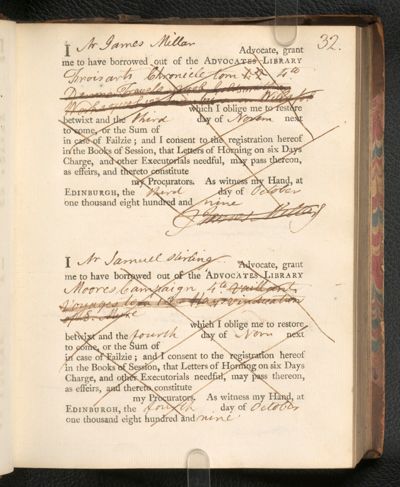 32.
I Mr James Miller Advocate, grant
me to have borrowed out of the ADVOCATES LIBRARY
Froisarts Chronicle tom 1. 2. 4to
which I oblige me to restore
betwixt and the third day of Novem next
to come, or the Sum of
in case of Failzie; and I consent to the registration hereof
in the Books of Session, that Letters of Horning on six Days
Charge, and other Executorials needful, may pass thereon,
as effeirs, and thereto constitute
my Procurators. As witness my Hand, at
EDINBURGH, the third day of October
one thousand eight hundred and nine
James Miller
I Mr Samuel Stirling Advocate, grant
me to have borrowed out of the ADVOCATES LIBRARY
Moores Campaign, 4to Vaillants
Voyages tom 1. 2. vindication
which I oblige me to restore
betwixt and the fourth day of Novr next
to come, or the Sum of
in case of Failzie; and I consent to the registration hereof
in the Books of Session, that Letters of Horning on six Days
Charge, and other Executorials needful, may pass thereon,
as effeirs, and thereto constitute
my Procurators. As witness my Hand, at
EDINBURGH, the fourth day of October
one thousand eight hundred and nine